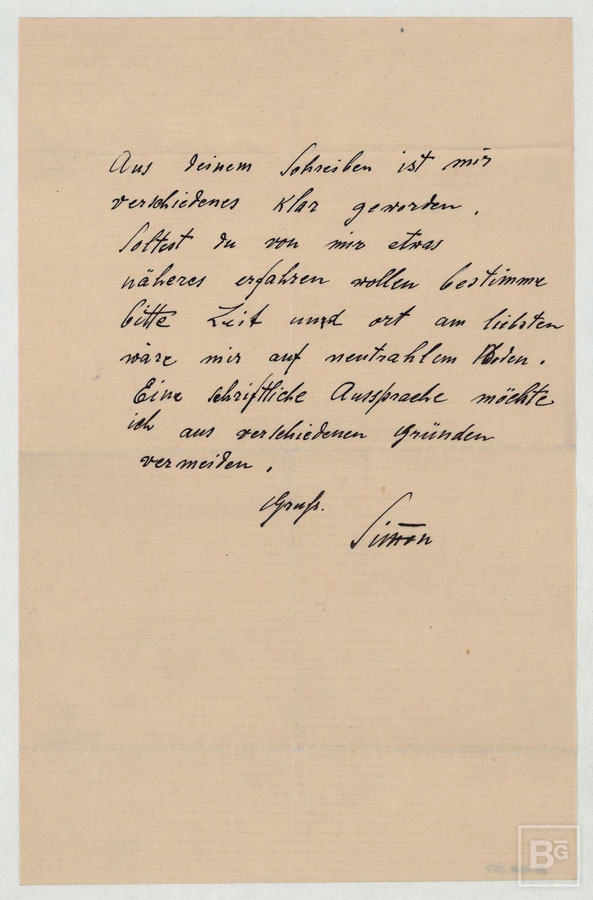 Aus deinem Schreiben ist mir
verschiedenes klar geworden.
Soltest du von mir etwas
näheres erfahren wollen bestimme
bitte Zeit und ort am liebsten
wäre mir auf neutrahlem Boden.
Eine schriftliche Aussprache möchte
ich aus verschiedenen Gründen
vermeiden.
Gruß.
Simon
BG